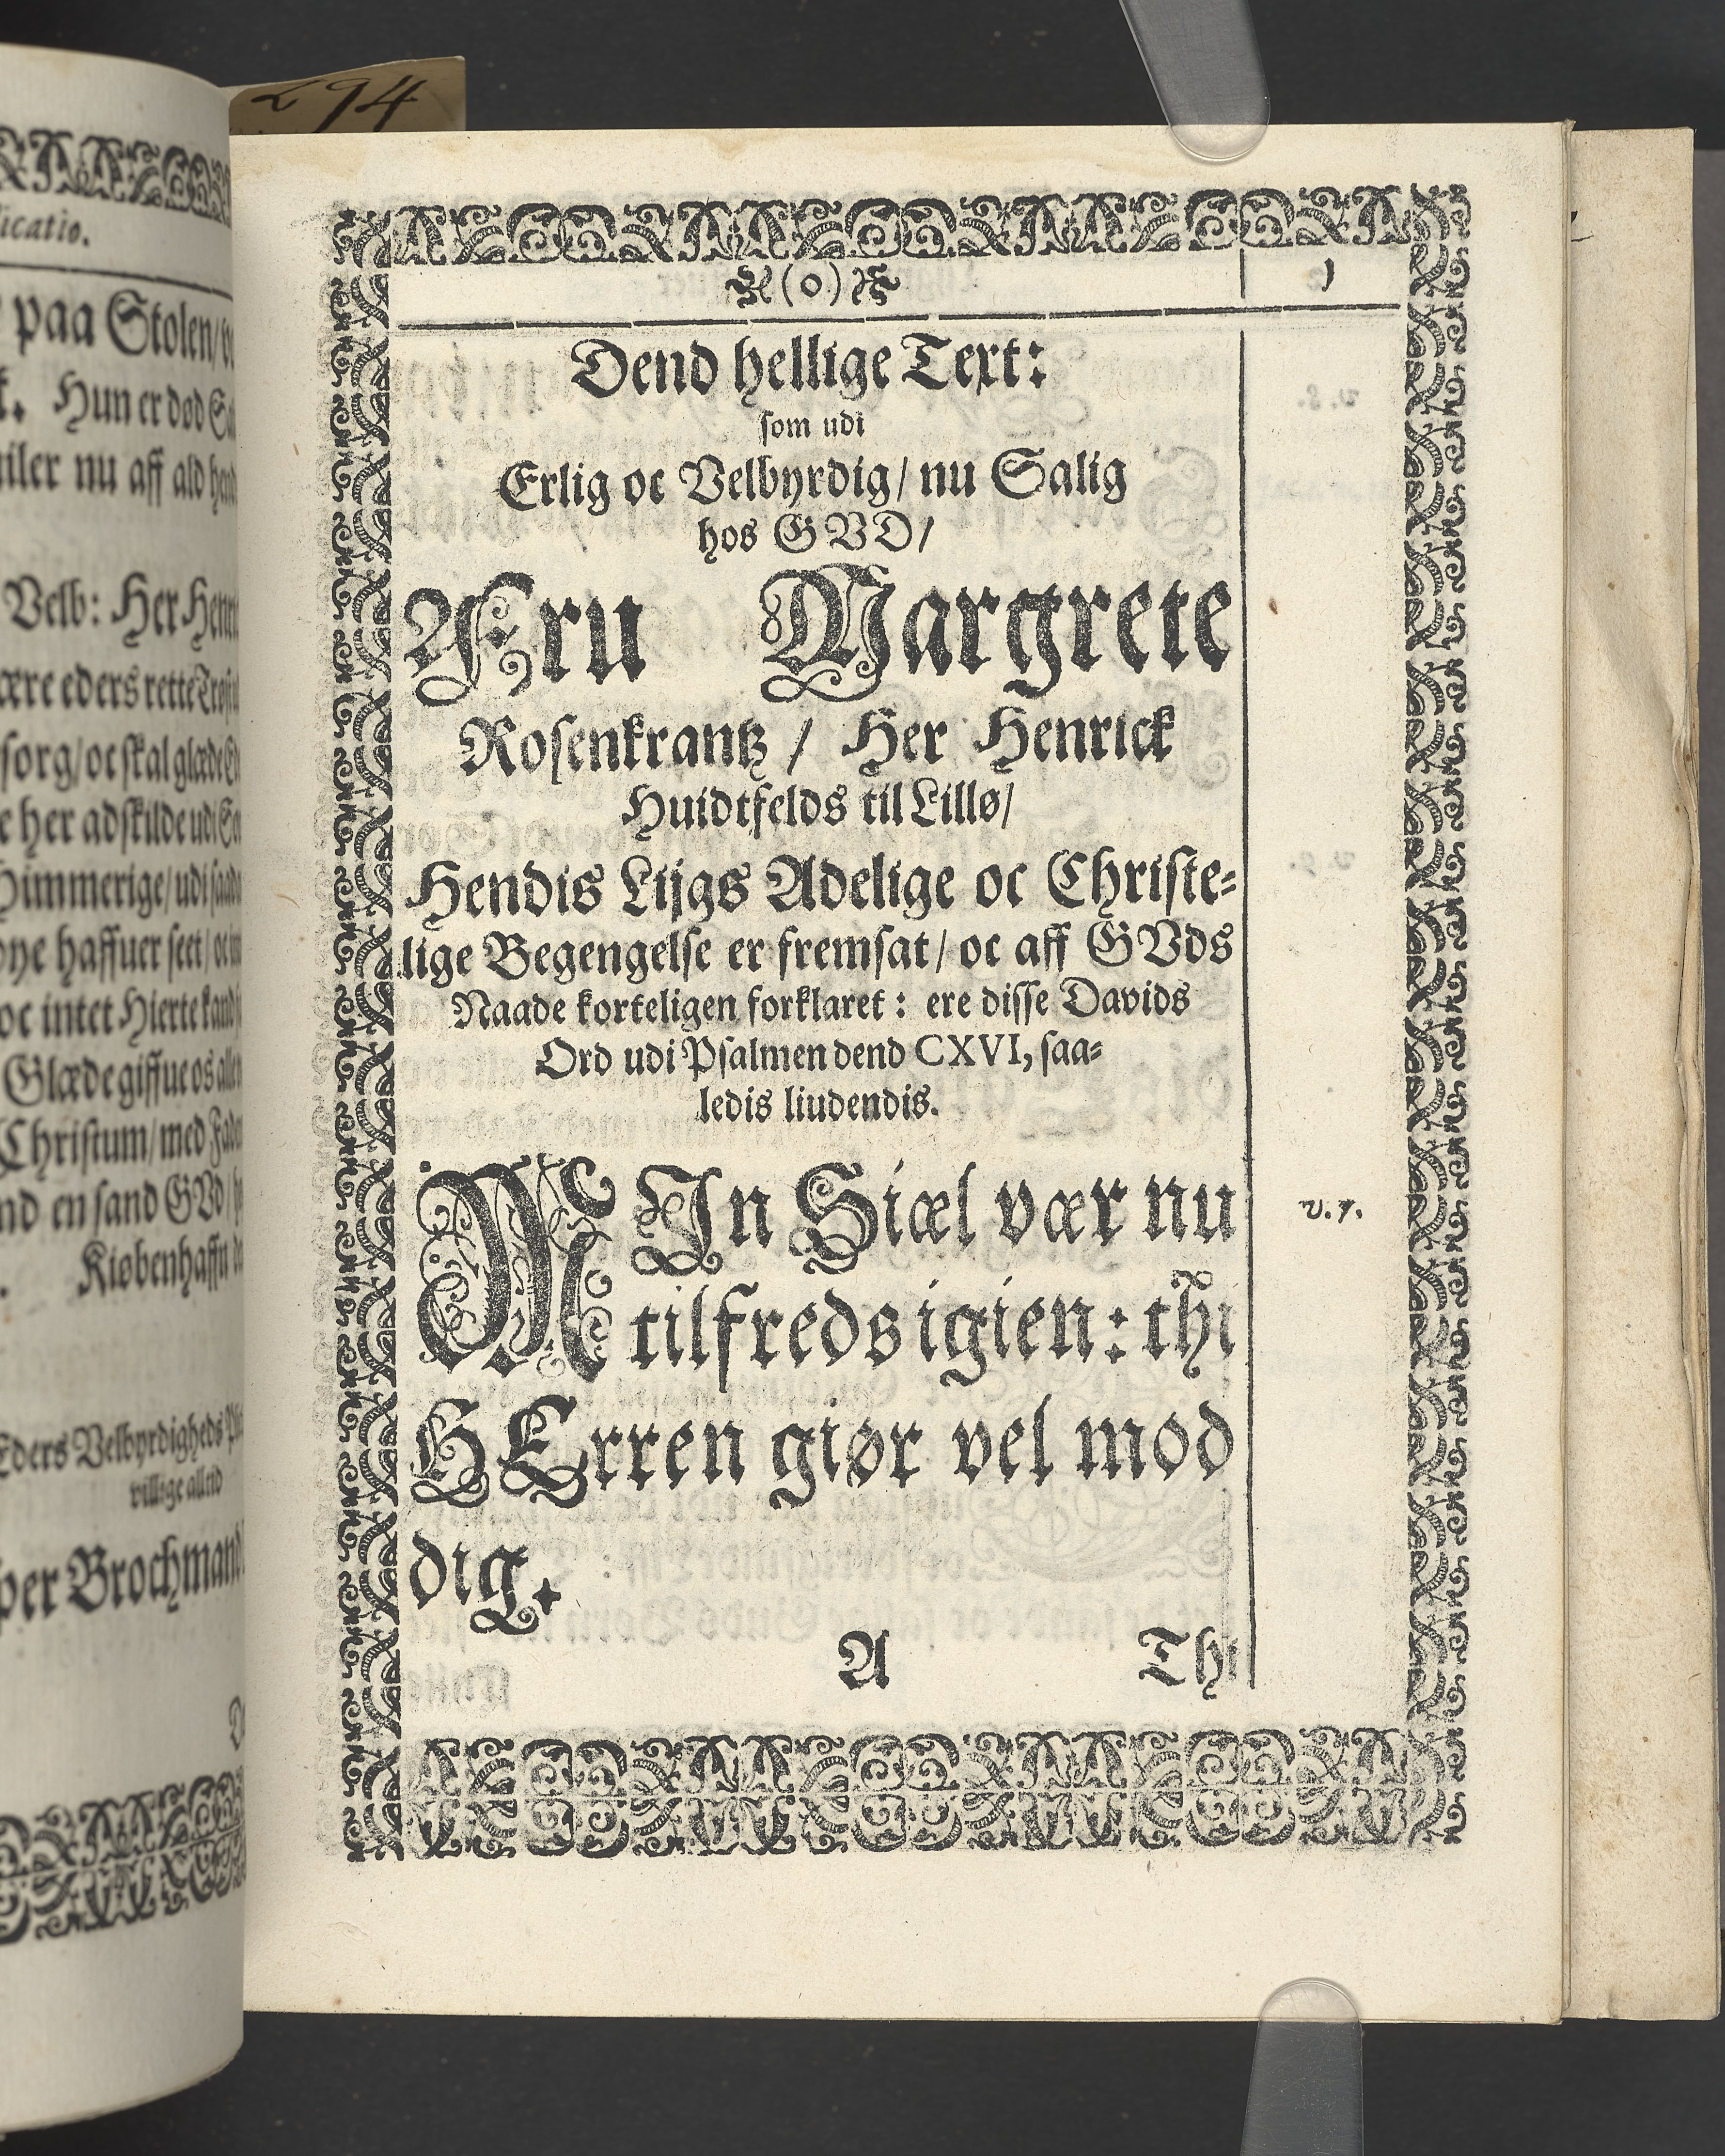 294
icatio.
paa Stolen/
Hun er død
iler nu aff ald
Velb: Her Henr
ære eders rette Trøst
sorg/ oc skal glæde
e her adskilde udi
Himmerige/ udi saad
øye haffuer seet/ oc
oc intet Hierte kand
Glæde giffue os alle
Christum/ med Fad
nd en sand GVd/
Kiøbenhaffn
Eders Velbyrdigheds
villige altid
per Brochmand
(o)
1
Dend hellige Text:
som udi
Erlig oc Velbyrdig/ nu Salig
hos GVD/
Fru Margrete
Rosenkrantz / Her Henrick
Huidtfelds til Lillø/
Hendis Lijgs Adelige oc Christe-
lige Begengelse er fremsat/ oc aff GVds
Naade korteligen forklaret: ere disse Davids
Ord udi Psalmen dend CXVI, saa-
ledis liudendis.
MIn Siæl vær nu
v.7.
tilfreds igien: thi
HErren giør vel mod
dig.
A Thi